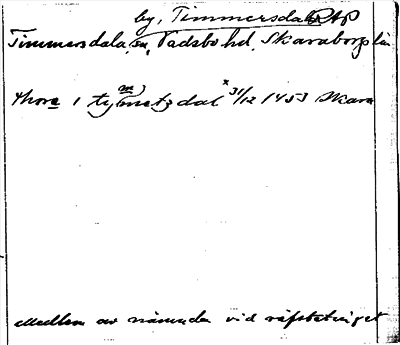 by, Timmersdala RAP
Timmersdala, sn, Vadsbo hd, Skaraborgs län
thore i tymetzdal x 31/12 1453 Skara
m)
Medlem av nämnden vid räfstetinget